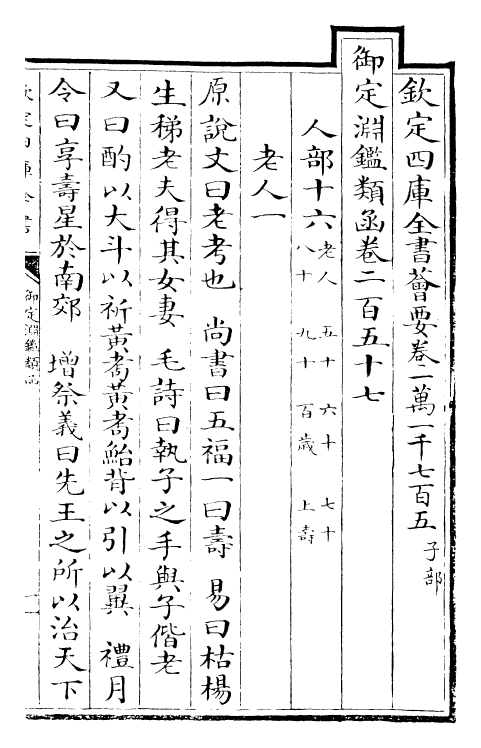 欽定四庫全書薈要卷二萬一千七百五 子部
御定淵鑑類函卷二百五十七
人部十六老人 五十 六十 七十 八十 九十 百歲 上壽
老人一
原說文曰老考也 尚書曰五福一曰壽 易曰枯楊
生稊老夫得其女妻 毛詩曰執子之手與子偕老
又曰酌以大斗以祈黃耇黃耇鮐背以引以翼 禮月
令曰享壽星於南郊 增祭義曰先王之所以治天下
欽定四庫全書
御定淵鑑類函